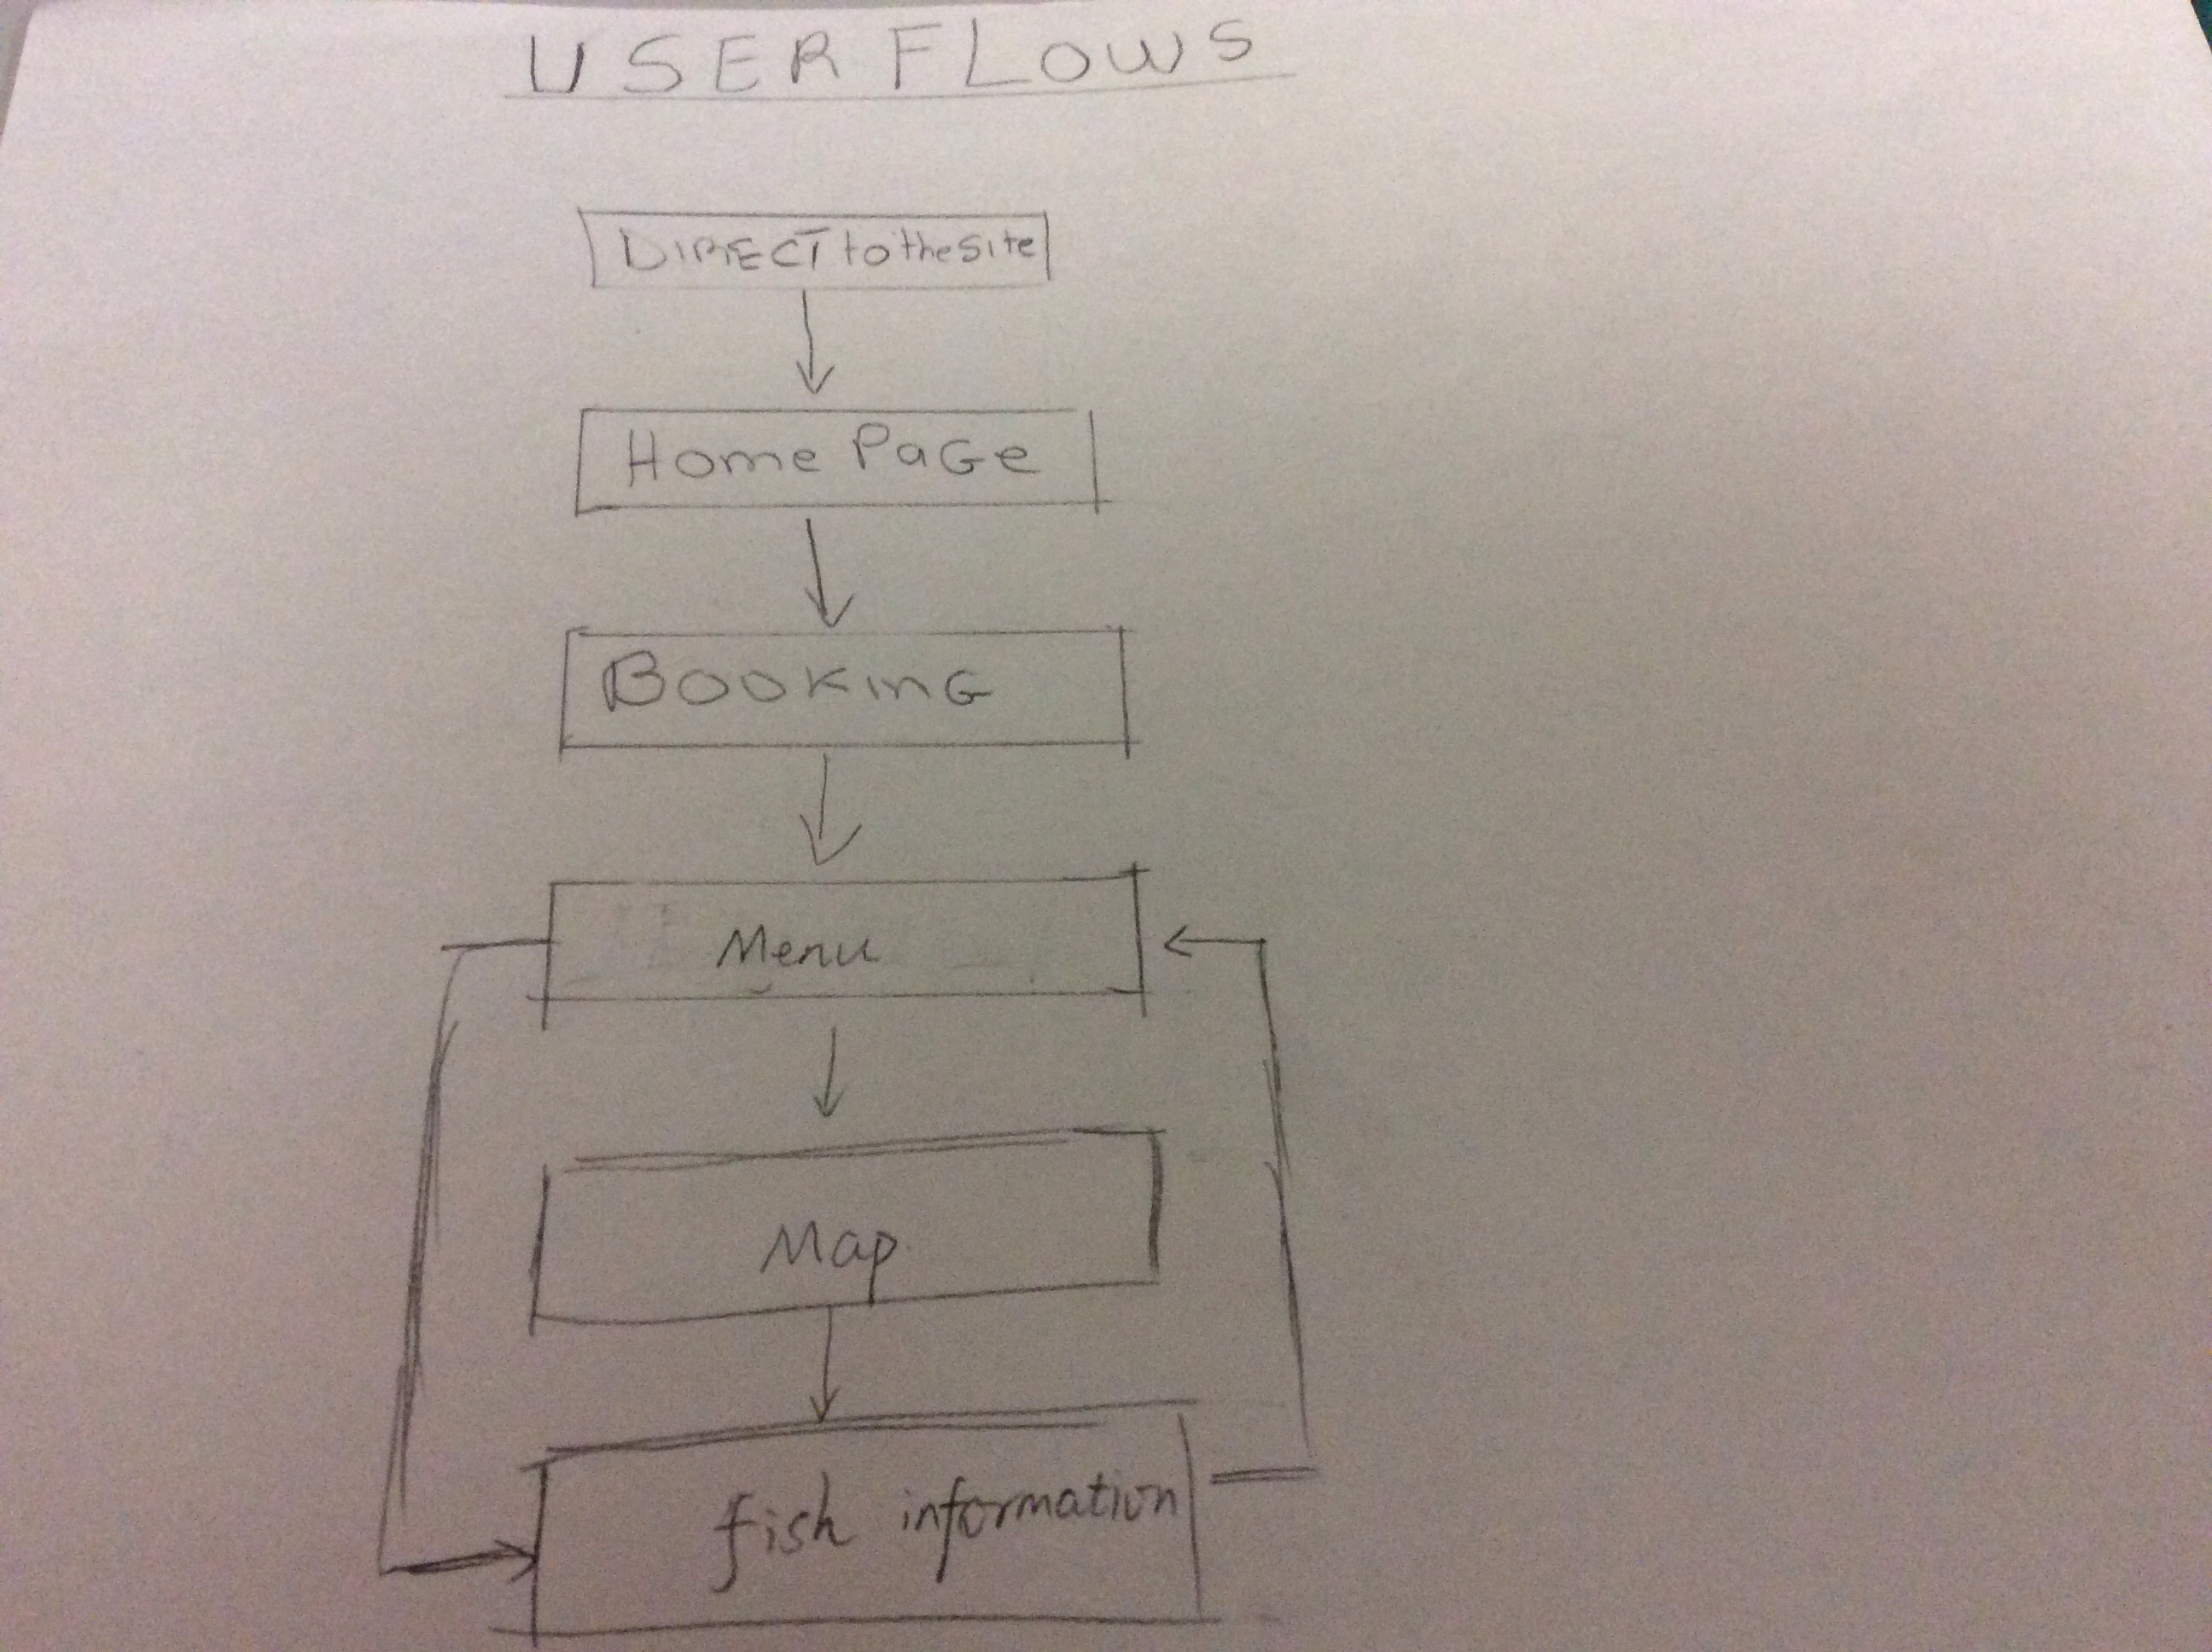 USER FLOWS
DIRECT to the site
Home PaGe
BOOKinG
Menu
Map
fish information